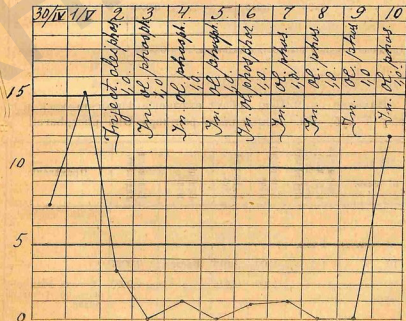 30/IV 1/V 2 3 4. 5. 6 7 8 9 10
Inject. olei phos. 1,0
In. ol. phosph. 1,0
In. ol. phosph. 1,0
In. ol. phosph. 1,0
In. ol. phosphor. 1,0
In. ol. phos. 1,0
In. ol. phos. 1,0
In. ol. phos. 1,0
In. ol. phos. 1,0
15
10
5
0